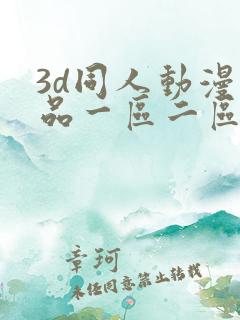 3d同人動漫
品一區二區
章珂
未任同意禁止转载